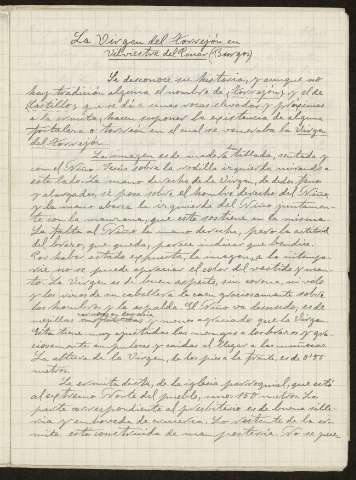 La Virgen del Torrejón en
Vilviestre del Pinar (Burgos)
Se desconoce su historia, y aunque no
hay tradición alguna el nombre de "Torrejón" y el de
Castillo, que se da a unas rocas elevadas y próximas
a la ermita, hacen suponer la existencia de alguna
fortaleza o torreón en el cual se veneraba la Virgen
del Torrejón.
La imagen es de madera tallada, sentada y
con el Niño Jesús sobre la rodilla izquierda mirando a
este lado. La mano derecha de la Virgen, de dedos finos
y alargados, se posa sobre el hombro derecho del Niño,
y la mano abarca la izquierda del Niño juntamen-
te con la manzana, que este sostiene en la misma.
Le falta al Niño la mano derecha, pero la actitud
del brazo, que queda, parece indicar que bendice.
Por haber estado expuesta, la imagen, a la intempe-
rie no se puede apreciar el color del vestido y man-
to. La Virgen es de buen aspecto, sin corona, ni velo
y los rizos de su cabellera le caen graciosamente sobre
los hombros y la espalda. El Niño va desnudo, es de
mejillas y menos agraciado que la Virgen.
Esta tiene muy ajustadas las mangas a los brazos y gra-
ciosamente en pulsera y caidas al llegar a las muñecas.
La altura de la Virgen, de los pies a la frente es de 0'80
metros.
La ermita dista, de la iglesia parroquial, que está
al extremo Norte del pueblo, unos 150 metros. La
parte correspondiente al presbiterio es de buena sille-
ría y en boveda de crucería. Lo restante de la er-
mita está construida de mampostería. No se pue-